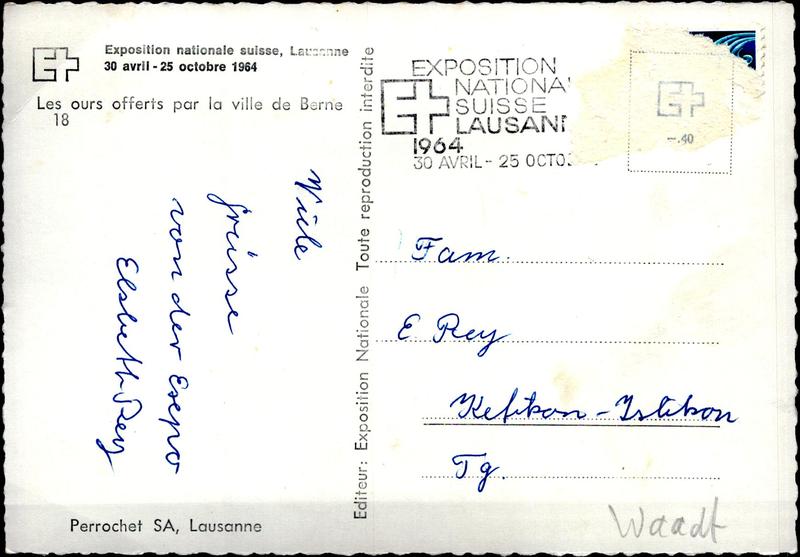 Exposition nationale suisse, Lausanne
30 avril - 25 octobre 1964
Les ours offerts par la ville de Berne
18
Viele
grüsse
von der Expo
Elsbeth Rey
Perrochet SA, Lausanne
Editeur: Exposition Nationale Toute reproduction interdite
EXPOSITION
NATIONA
SUISSE
LAUSAN
1964
30 AVRIL - 25 OCTO
-.40
Fam.
E Rey
Kefikon - Islikon
Tg.
Waadt